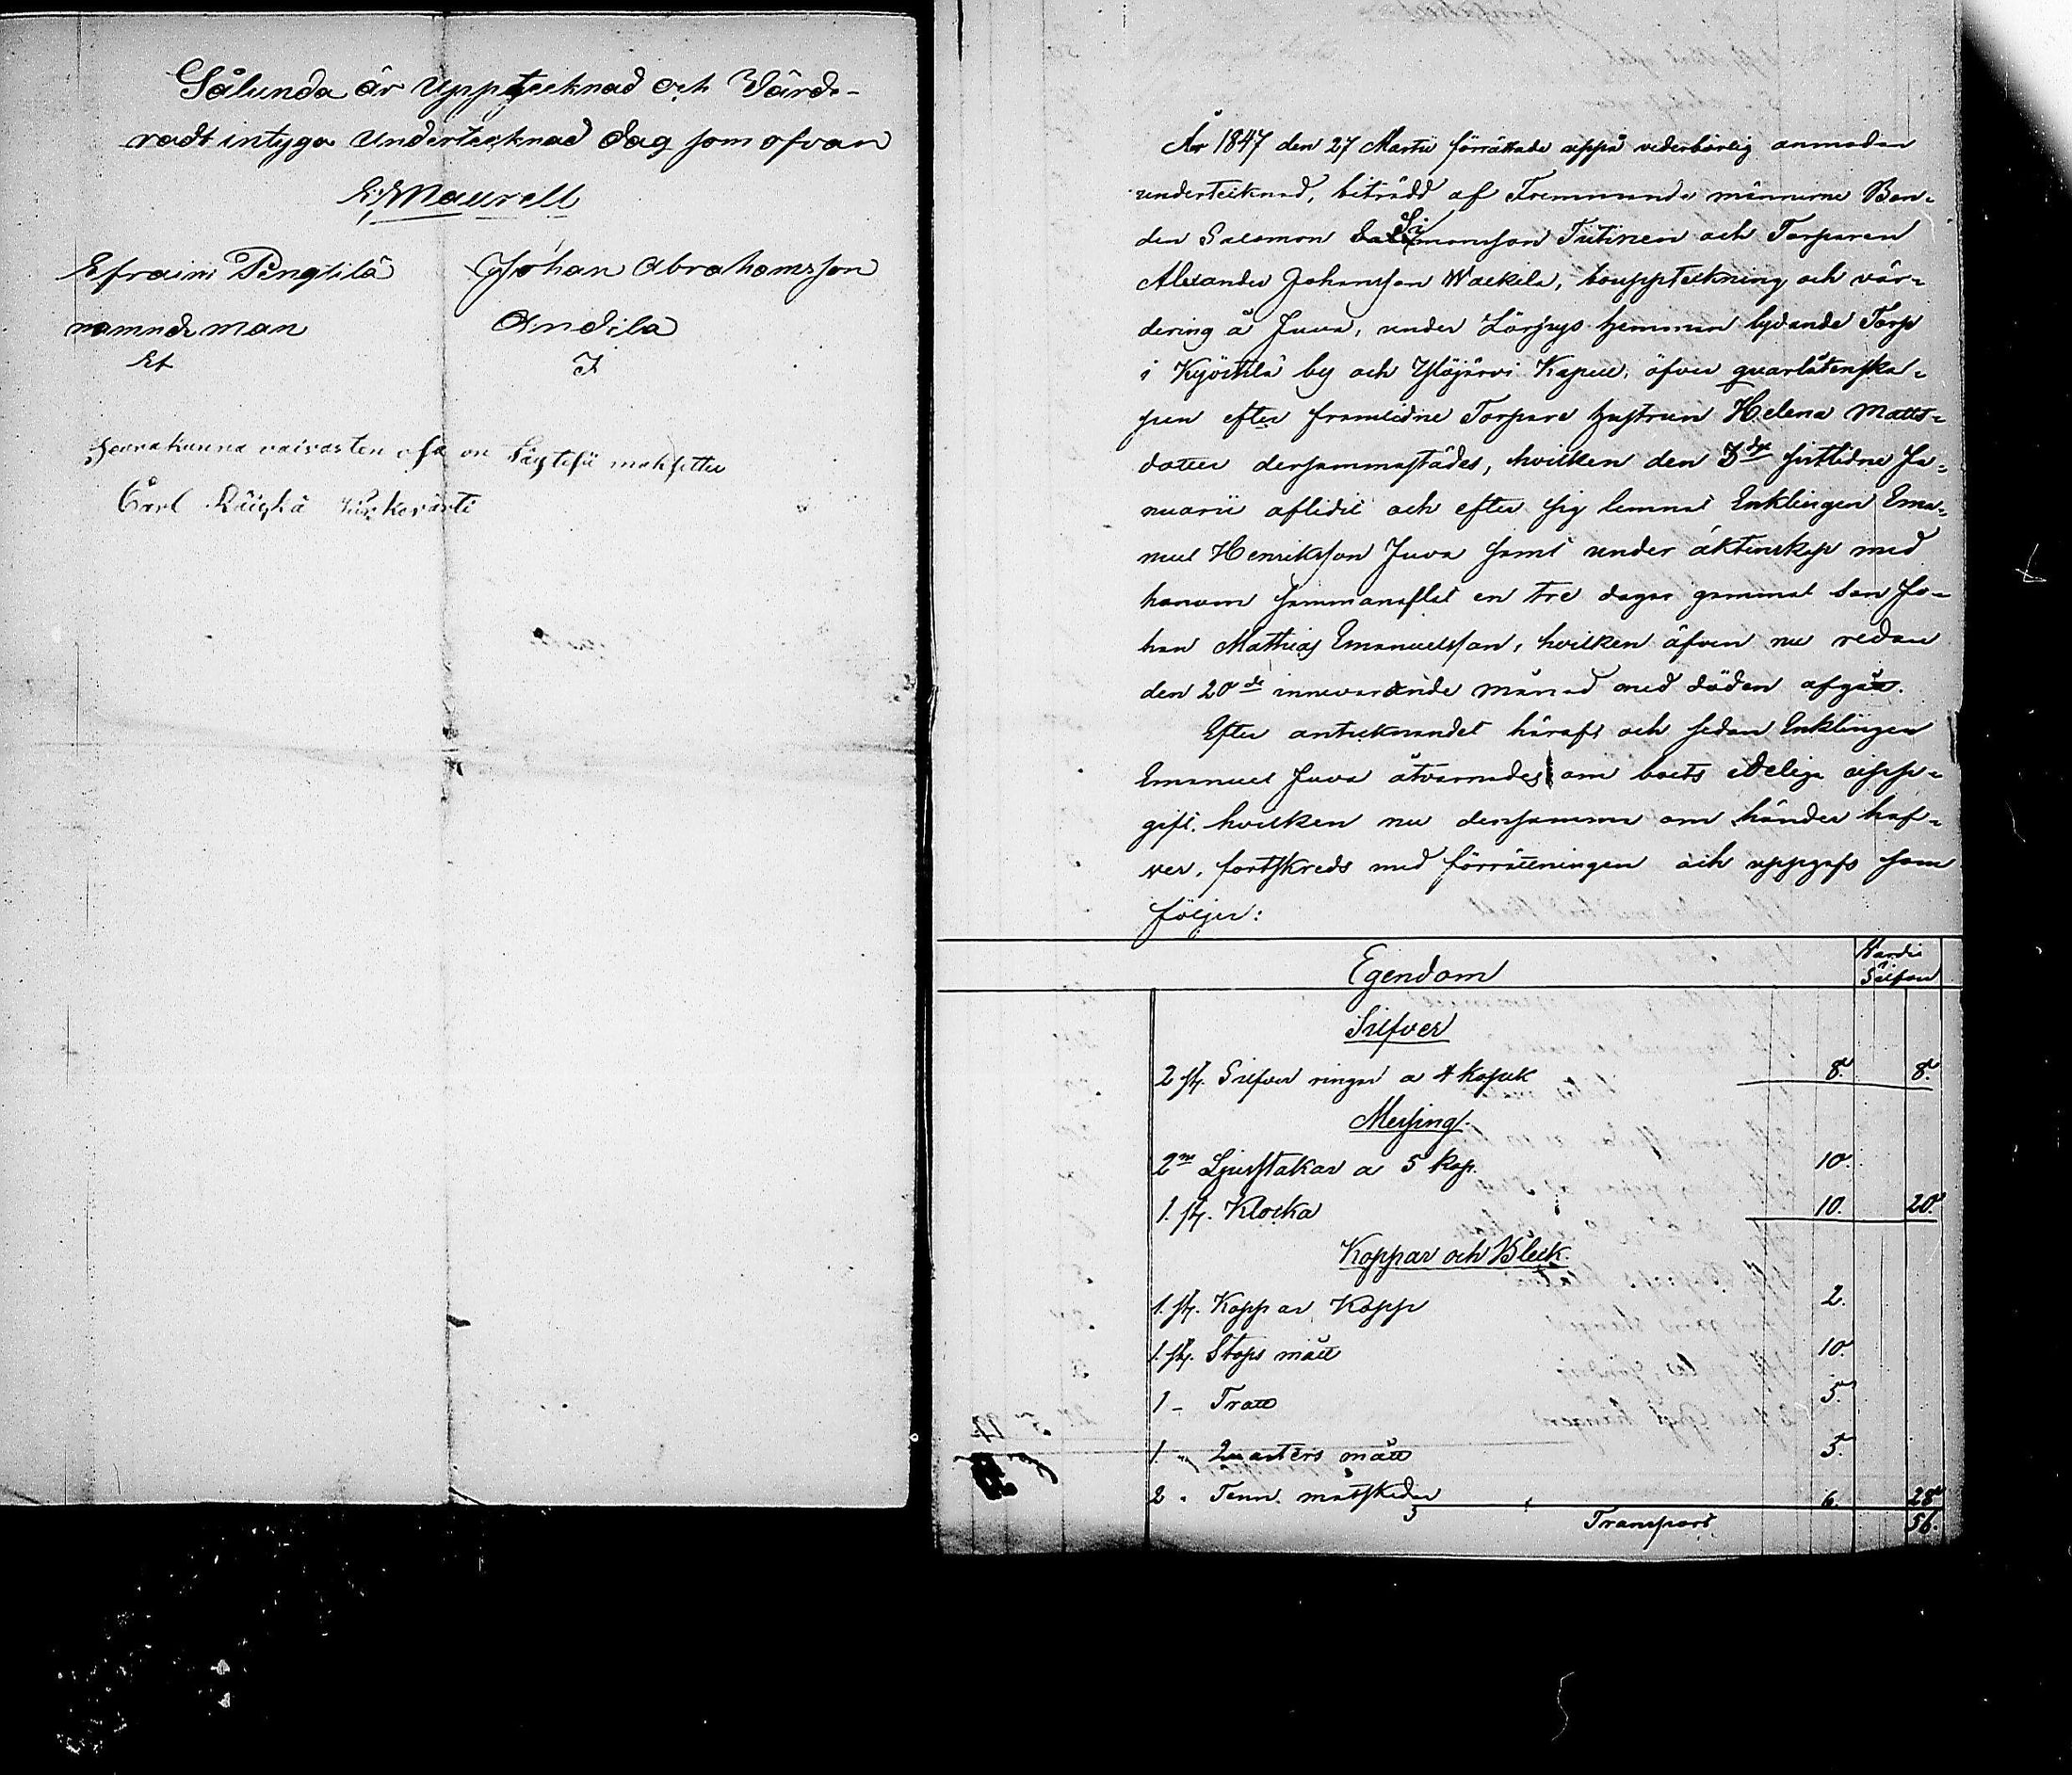 Sålunda är Upptecknad och Värde-
radt intyga Undertecknad dag som ofvan
Maurell
Efraim Pengtilä
nämndeman
Johan Abrahamsson
Andila
Seurakunna vaivasten osa on Täytesti maksettu
Carl
År 1847 den 27 Martii förrättade uppå vederbörlig anmodan
undertecknad, biträdd af Tremanna männerne Bon-
den Salomon Simonsson Tiitinen och Torparen
Alexander Johansson Wäckilä, bouppteckning och vär-
dering å Juva, under Lörpys hemman lydande Torp
i Kyöstilä by och Ylöjärvi Kapell, öfver qvarlåtenska-
pen efter framlidne Torpare hustrun Helena Matts-
dotter dersammastädes, hvilken den 3dje sistlidne Ja-
nuarii aflidit och efter sig lemnat Enklingen Ema-
nuel Henriksson Juva samt under äktenskap med
honom sammanaflat en tre dagar gammal Son Jo-
han Mathias Emanuelsson, hvilken äfven nu redan
den 20de innevarande månad med döden afgått.
Efter antecknandet häraf och sedan Enklingen
Emanuel Juva åtvarnades om boets edeliga upp-
gift, hvilken nu densamma om händer haf-
ver, fortskreds med förrättningen och uppgafs som
följer:
Egendom
Värde
Silfver
Silfver
2 st. Silfver ringar a 4 kopek 8. 8.
Messing.
2ne Ljusstakar a 5 kop. 10.
1. st. Klocka 10. 20.
Koppar och Bleck.
1. st. Koppar Kopp 2.
1. st. Stops mått 10.
1 - Tratt 5.
1. " Quarters mått 5.
2 " Tenn matskedar 6. 28.
Transport 56.